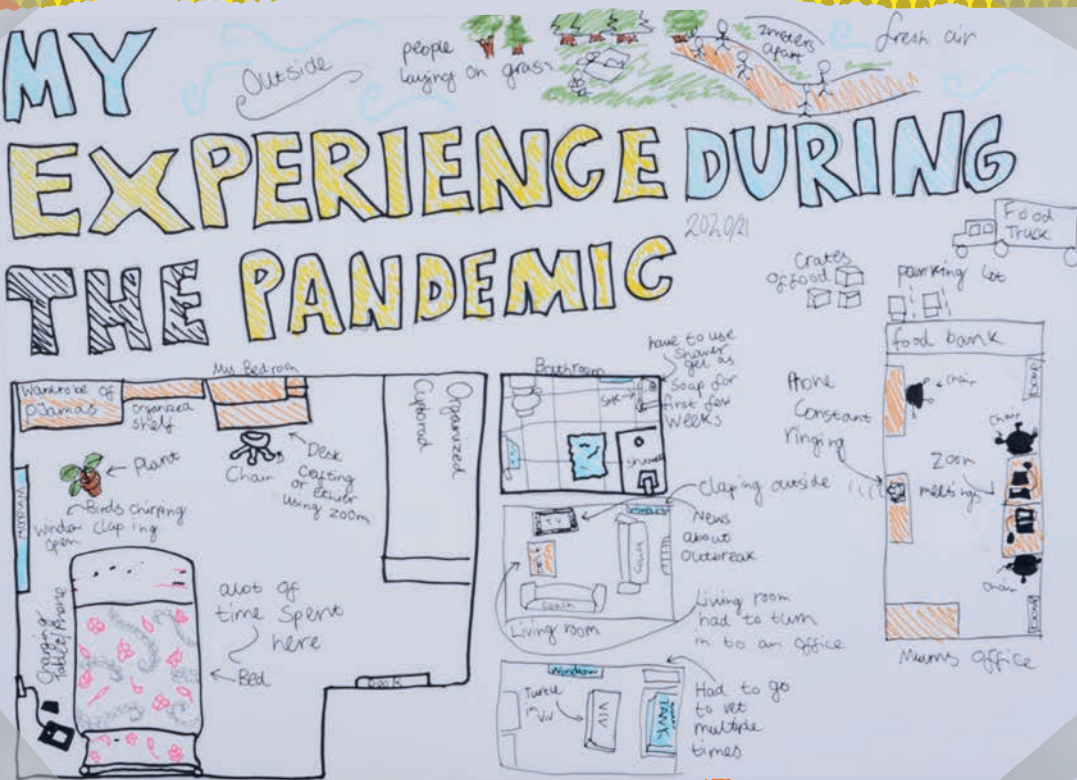 MY
EXPERIENCE DURING
THE PANDEMIC
2020/21
Outside
people
laying on grass
2meters
apart
fresh air
Food
Truck
Crates
of food
parking lot
food bank
chair
door
Phone
Constant
ringing
Zoom
meetings
chair
chair
door
Mums office
My Bedroom
Wardrobe of
pijamas
organized
shelf
Plant
Chair
Desk
Crafting
or either
using zoom
Organized
Cupbored
window
Birds chirping
window claping
open
Charging
Tablet/Phone
alot of
time spent
here
Bed
Door
Bathroom
Sink
shower
have to use
shower
gel as
soap for
first few
weeks
claping outside
News
about
outbreak
TV
window
couch
couch
Living room
Living room
had to turn
in to an office
Window
Turtle
in viv
VIV
TANK
Had to go
to vet
multiple
times